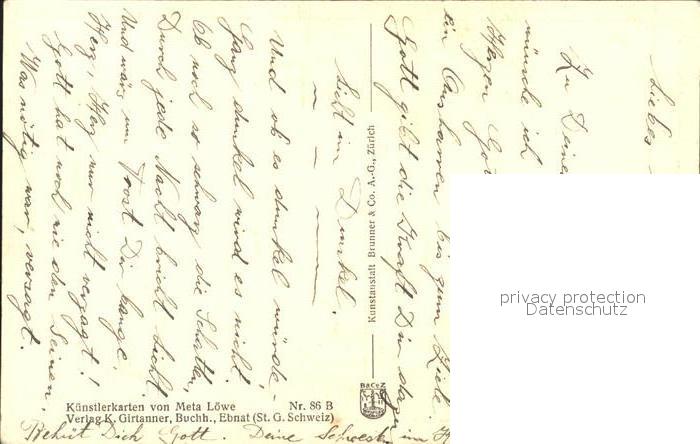 Liebes
Zu Deiner
wünsche ich
Herzen Got
ein Ausharren bis zum Ziele.
Gott gibt die Kraft Dir dazu
Licht im Dunkel.
Und ob es dunkel würde -
Ganz dunkel wird es nicht.
Ob noch so schwarz die Schatten,
Durch jede Nacht bricht Licht.
Und wär's um Trost Dir bange,
Herz, Herz nur nicht verzagt!
Gott hat noch nie den Seinen,
Was nötig war, versagt.
Behüt Dich Gott. Deine Schwester im H
Kunstanstalt Brunner & Co. A.-G., Zürich
BACOZ
Künstlerkarten von Meta Löwe Nr. 86 B
Verlag K. Girtanner, Buchh., Ebnat (St. G. Schweiz)
privacy protection
Datenschutz